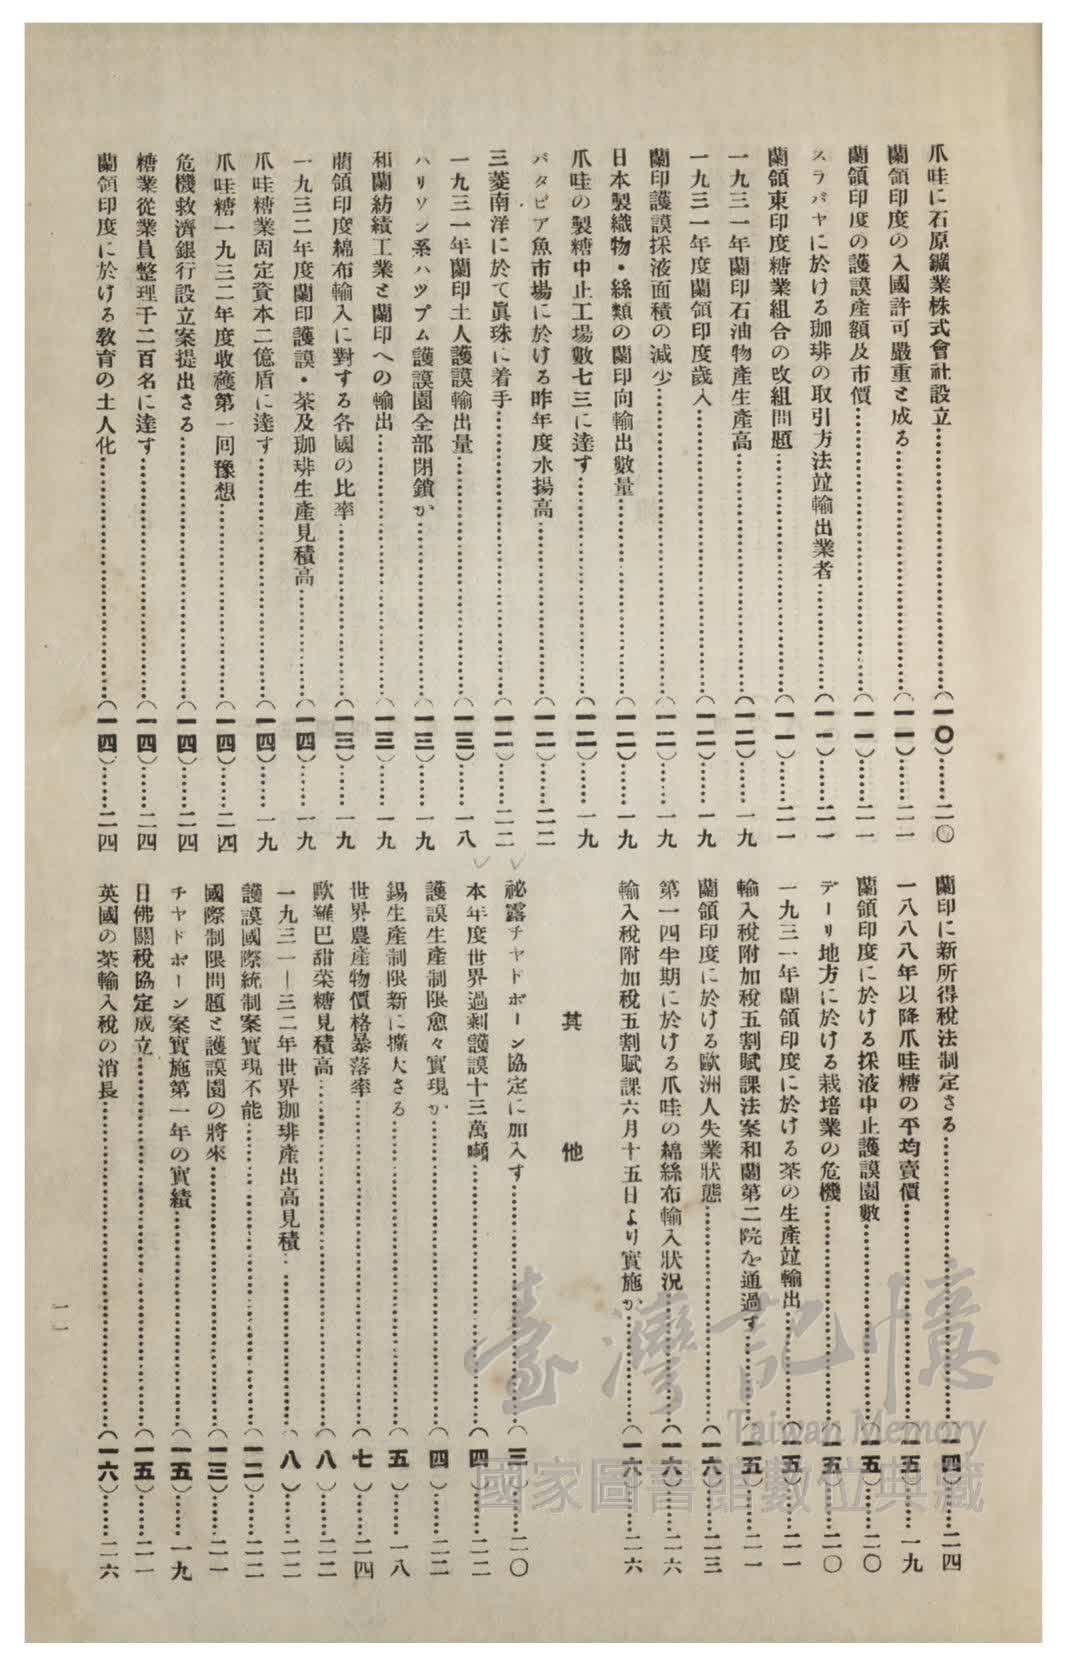 爪哇に石原鑛業株式會社設立……(一〇)……二〇
蘭領印度の入國許可嚴重と成る……(一一)……二一
蘭領印度の護謨產額及市價……(一一)……二一
スラバヤに於ける珈琲の取引方法竝輸出業者……(一一)……二一
蘭領東印度糖業組合の改組問題……(一一)……二一
一九三一年蘭印石油物產生產高……(一二)……一九
一九三一年度蘭領印度歲入……(一二)……一九
蘭印護謨採液面積の減少……(一二)……一九
日本製織物・絲類の蘭印向輸出數量……(一二)……一九
爪哇の製糖中止工場數七三に達す……(一二)……一九
バタビア魚市場に於ける昨年度水揚高……(一二)……二二
三菱南洋に於て眞珠に着手……(一二)……二二
一九三一年蘭印土人護謨輸出量……(一三)……一八
ハリソン系ハツプム護謨園全部閉鎖か……(一三)……一九
和蘭紡績工業と蘭印への輸出……(一三)……一九
蘭領印度綿布輸入に對する各國の比率……(一三)……一九
一九三二年度蘭印護謨・茶及珈琲生產見積高……(一四)……一九
爪哇糖業固定資本二億盾に達す……(一四)……一九
爪哇糖一九三二年度收穫第一回豫想……(一四)……二四
危機救濟銀行設立案提出さる……(一四)……二四
糖業從業員整理千二百名に達す……(一四)……二四
蘭領印度に於ける敎育の土人化……(一四)……二四
蘭印に新所得稅法制定さる……(一四)……二四
一八八八年以降爪哇糖の平均賣價……(一五)……一九
蘭領印度に於ける採液中止護謨園數……(一五)……二〇
デーリ地方に於ける栽培業の危機……(一五)……二〇
一九三一年蘭領印度に於ける茶の生產竝輸出……(一五)……二一
輸入稅附加稅五割賦課法案和蘭第二院を通過す……(一五)……二一
蘭領印度に於ける歐洲人失業狀態……(一六)……二三
第一四半期に於ける爪哇の綿絲布輸入狀況……(一六)……二六
輸入稅附加稅五割賦課六月十五日より實施か……(一六)……二六
其他
祕露チヤドボーン協定に加入す……(三)……二〇
本年度世界過剩護謨十三萬噸……(四)……二二
護謨生產制限愈々實現か……(四)……二二
錫生產制限新に擴大さる……(五)……一八
世界農產物價格暴落率……(七)……二四
歐羅巴甜菜糖見積高……(八)……二二
一九三一—三二年世界珈琲產出高見積……(八)……二二
護謨國際統制案實現不能……(一二)……二二
國際制限問題と護謨園の將來……(一三)……二一
チヤドボーン案實施第一年の實績……(一五)……一九
日佛關稅協定成立……(一五)……二一
英國の茶輸入稅の消長……(一六)……二六
一一
臺灣記憶
Taiwan Memory
國家圖書館數位典藏